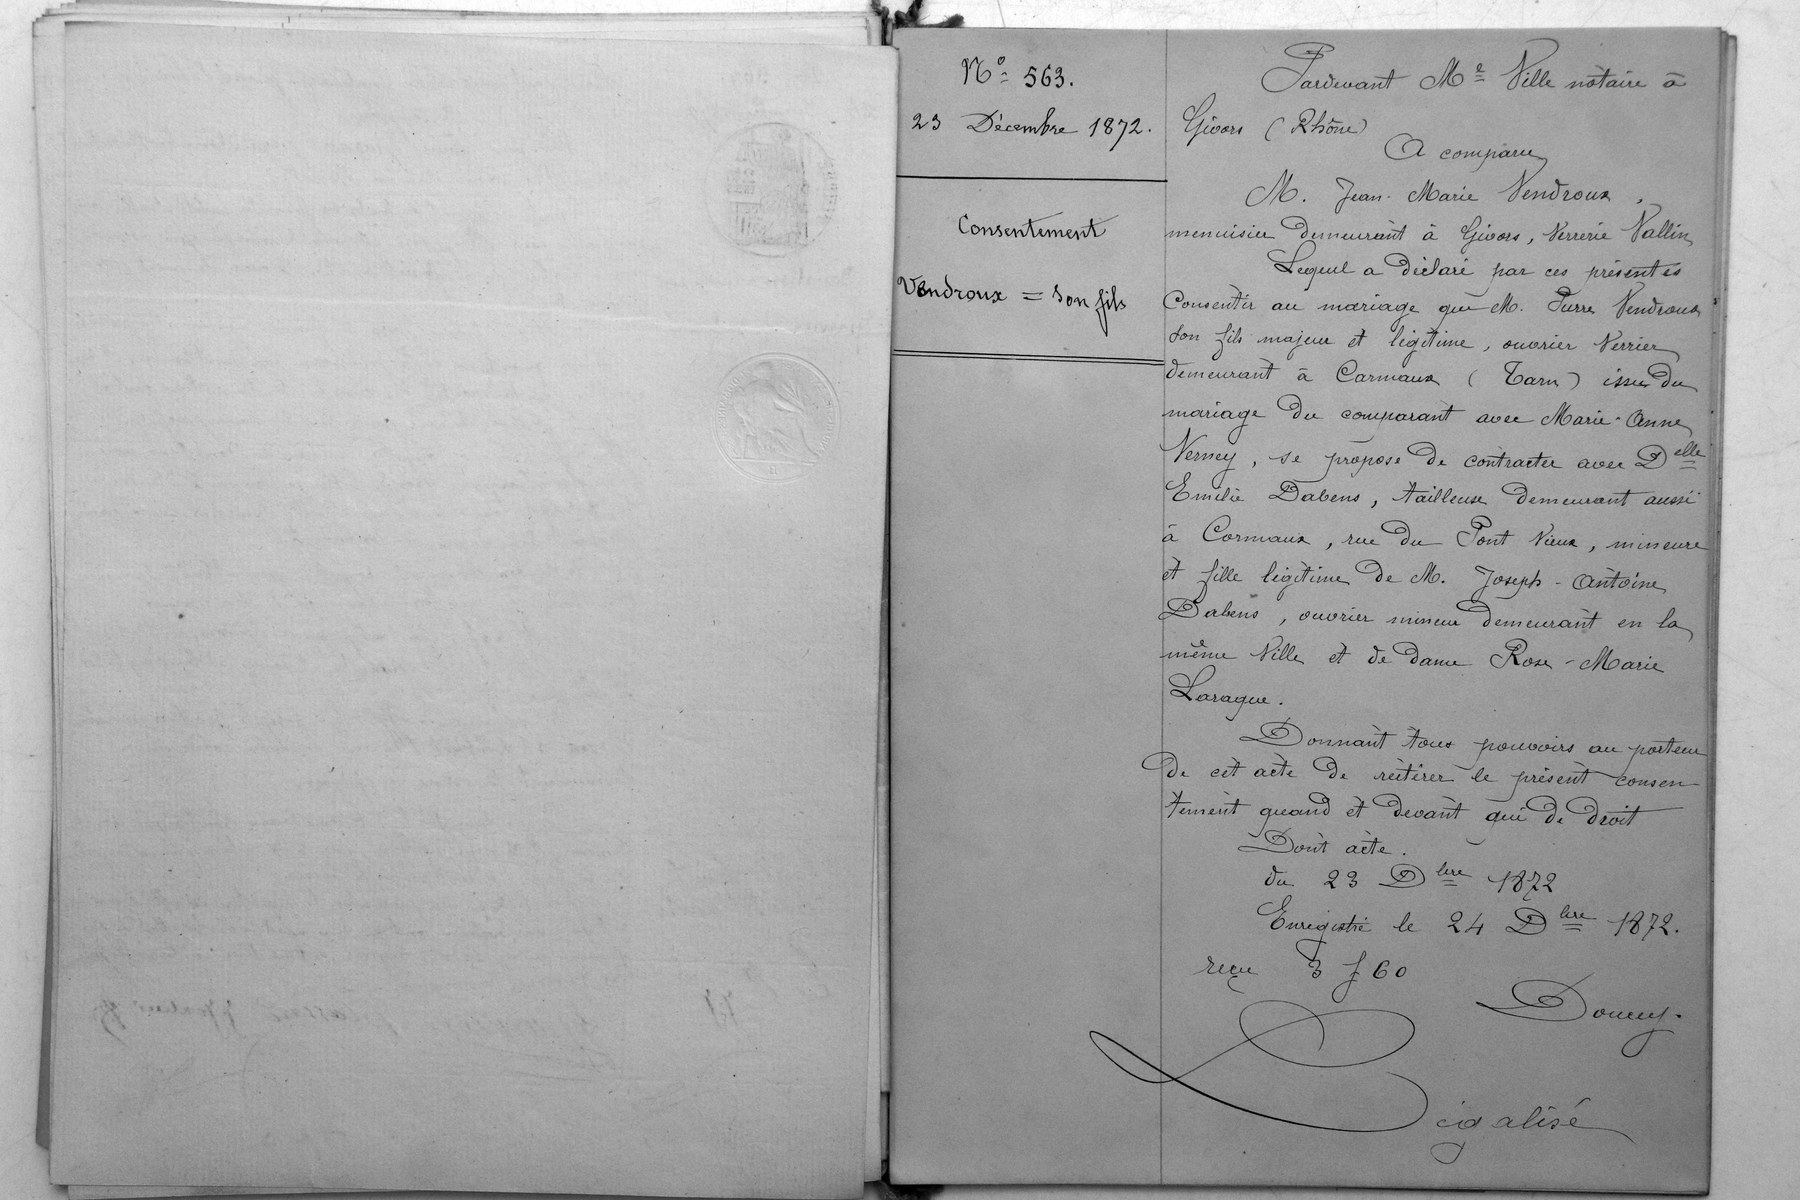 Nº 563.
23 Décembre 1872.
Consentement
Vendroux = son fils
Pardevant Me Ville notaire à
Givors (Rhône)
A comparu
M. Jean-Marie Vendroux,
menuisier demeurant à Givors, Verrerie Vallin
Lequel a déclaré par ces présentes
Consentir au mariage que M. Pierre Vendroux
son fils majeur et légitime, ouvrier Verrier
demeurant à Carmaux (Tarn) issu du
mariage du comparant avec Marie-Anne
Verney, se propose de contracter avec Delle
Emilie Dabens, tailleuse demeurant aussi
à Carmaux, rue du Pont Vieux, mineure
et fille légitime de M. Joseph-Antoine
Dabens, ouvrier mineur demeurant en la
même Ville et de dame Rose-Marie
Laragne.
Donnant tous pouvoirs au porteur
de cet acte de réitérer le présent consen
tement quand et devant qui de droit
Dont acte.
du 23 Dbre 1872
Enregistré le 24 Dbre 1872.
reçu 3 f 60
Légalisé